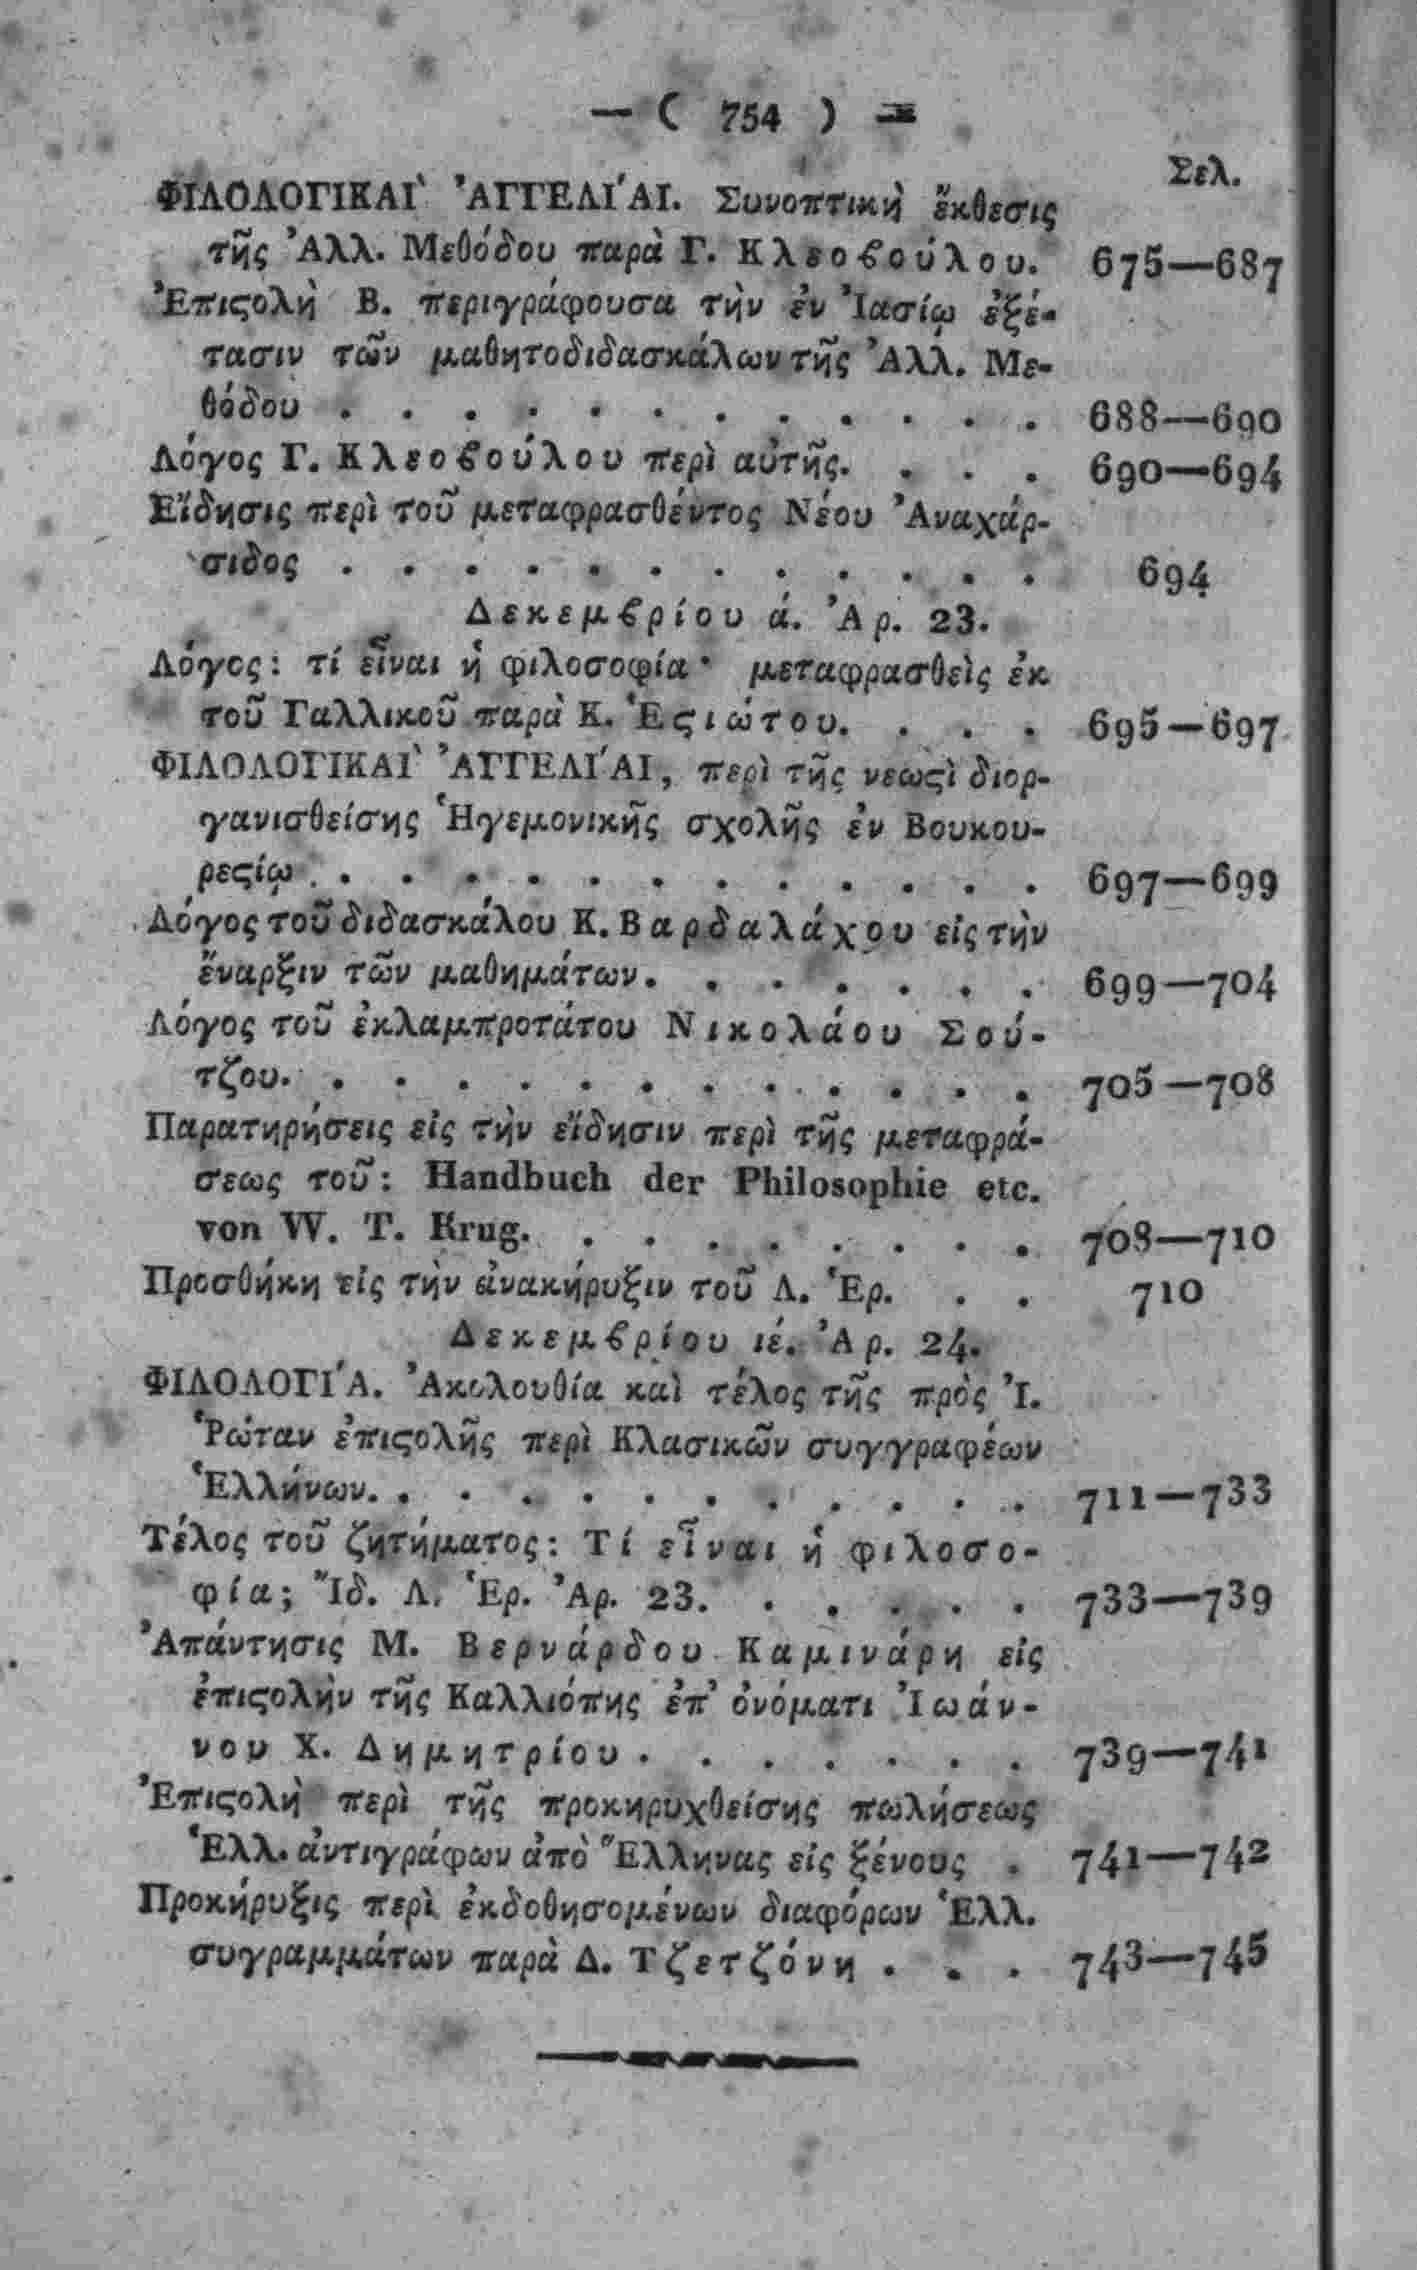 — ( 754 ) —
Σελ.
ΦΙΛΟΛΟΓΙΚΑῚ ᾿ΑΓΓΕΛΙ´ΑΙ. Συνοπτικὴ ἔκθεσις
τῆς ᾿Αλλ. Μεθόδου παρὰ Γ. Κλεοϐούλου. 675—687
᾿Επιϛολὴ Β. περιγράφουσα τὴν ἐν ᾿Ιασίῳ ἐξέ-
τασιν τῶν μαθητοδιδασκάλων τῆς ᾿Αλλ. Με-
θόδου . . . . . . . . . . . . 688—690
Λόγος Γ. Κλεοϐούλου περὶ αὐτῆς. . . . 690—694
Εἴδησις περὶ τοῦ μεταφρασθέντος Νέου ᾿Αναχάρ-
σιδος . . . . . . . . . . . . 694
Δεκεμϐρίου ά. ᾿Αρ. 23.
Λόγος: τί εἶναι ἡ φιλοσοφία· μεταφρασθεὶς ἐκ
τοῦ Γαλλικοῦ παρὰ Κ. ῾Εϛιώτου. . . . 695—697
ΦΙΛΟΛΟΓΙΚΑῚ ᾿ΑΓΓΕΛΙ´ΑΙ, περὶ τῆς νεωϛὶ διορ-
γανισθείσης ῾Ηγεμονικῆς σχολῆς ἐν Βουκου-
ρεϛίῳ . . . . . . . . . . . . . 697—699
Λόγος τοῦ διδασκάλου Κ. Βαρδαλάχου εἰς τὴν
ἔναρξιν τῶν μαθημάτων. . . . . . . 699—704
Λόγος τοῦ ἐκλαμπροτάτου Νικολάου Σού-
τζου. . . . . . . . . . . . . 705—708
Παρατηρήσεις εἰς τὴν εἴδησιν περὶ τῆς μεταφρά-
σεως τοῦ: Handbuch der Philosophie etc.
von W. T. Krug. . . . . . . . . 708—710
Προσθήκη εἰς τὴν ἀνακήρυξιν τοῦ Λ. ῾Ερ. . . 710
Δεκεμϐρίου ιέ. ᾿Αρ. 24.
ΦΙΛΟΛΟΓΙ´Α. ᾿Ακολουθία καὶ τέλος τῆς πρὸς ᾿Ι.
῾Ρώταν ἐπιϛολῆς περὶ Κλασικῶν συγγραφέων
῾Ελλήνων. . . . . . . . . . . . 711—733
Τέλος τοῦ ζητήματος: Τί εἶναι ἡ φιλοσο-
φία; ῎Ιδ. Λ. ῾Ερ. ᾿Αρ. 23. . . . . . 733—739
᾿Απάντησις Μ. Βερνάρδου Καμινάρη εἰς
ἐπιϛολὴν τῆς Καλλιόπης ἐπ᾿ ὀνόματι ᾿Ιωάν-
νου Χ. Δημητρίου . . . . . . . 739—741
᾿Επιϛολὴ περὶ τῆς προκηρυχθείσης πωλήσεως
῾Ελλ. ἀντιγράφων ἀπὸ ῞Ελληνας εἰς ξένους . 741—742
Προκήρυξις περὶ ἐκδοθησομένων διαφόρων ῾Ελλ.
συγραμμάτων παρὰ Δ. Τζετζόνη . . . 743—745